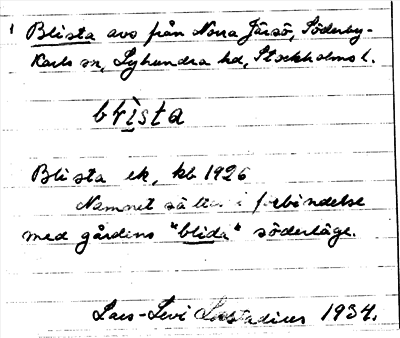 1 Blista avs från Norra Järsö, Söderby-
Karls sn, Lyhundra hd, Stockholms l.
blista
Blista ek, kb 1926
Namnet sättes i förbindelse
med gårdens "blida" söderläge.
Lars-Levi Læstadius 1934.